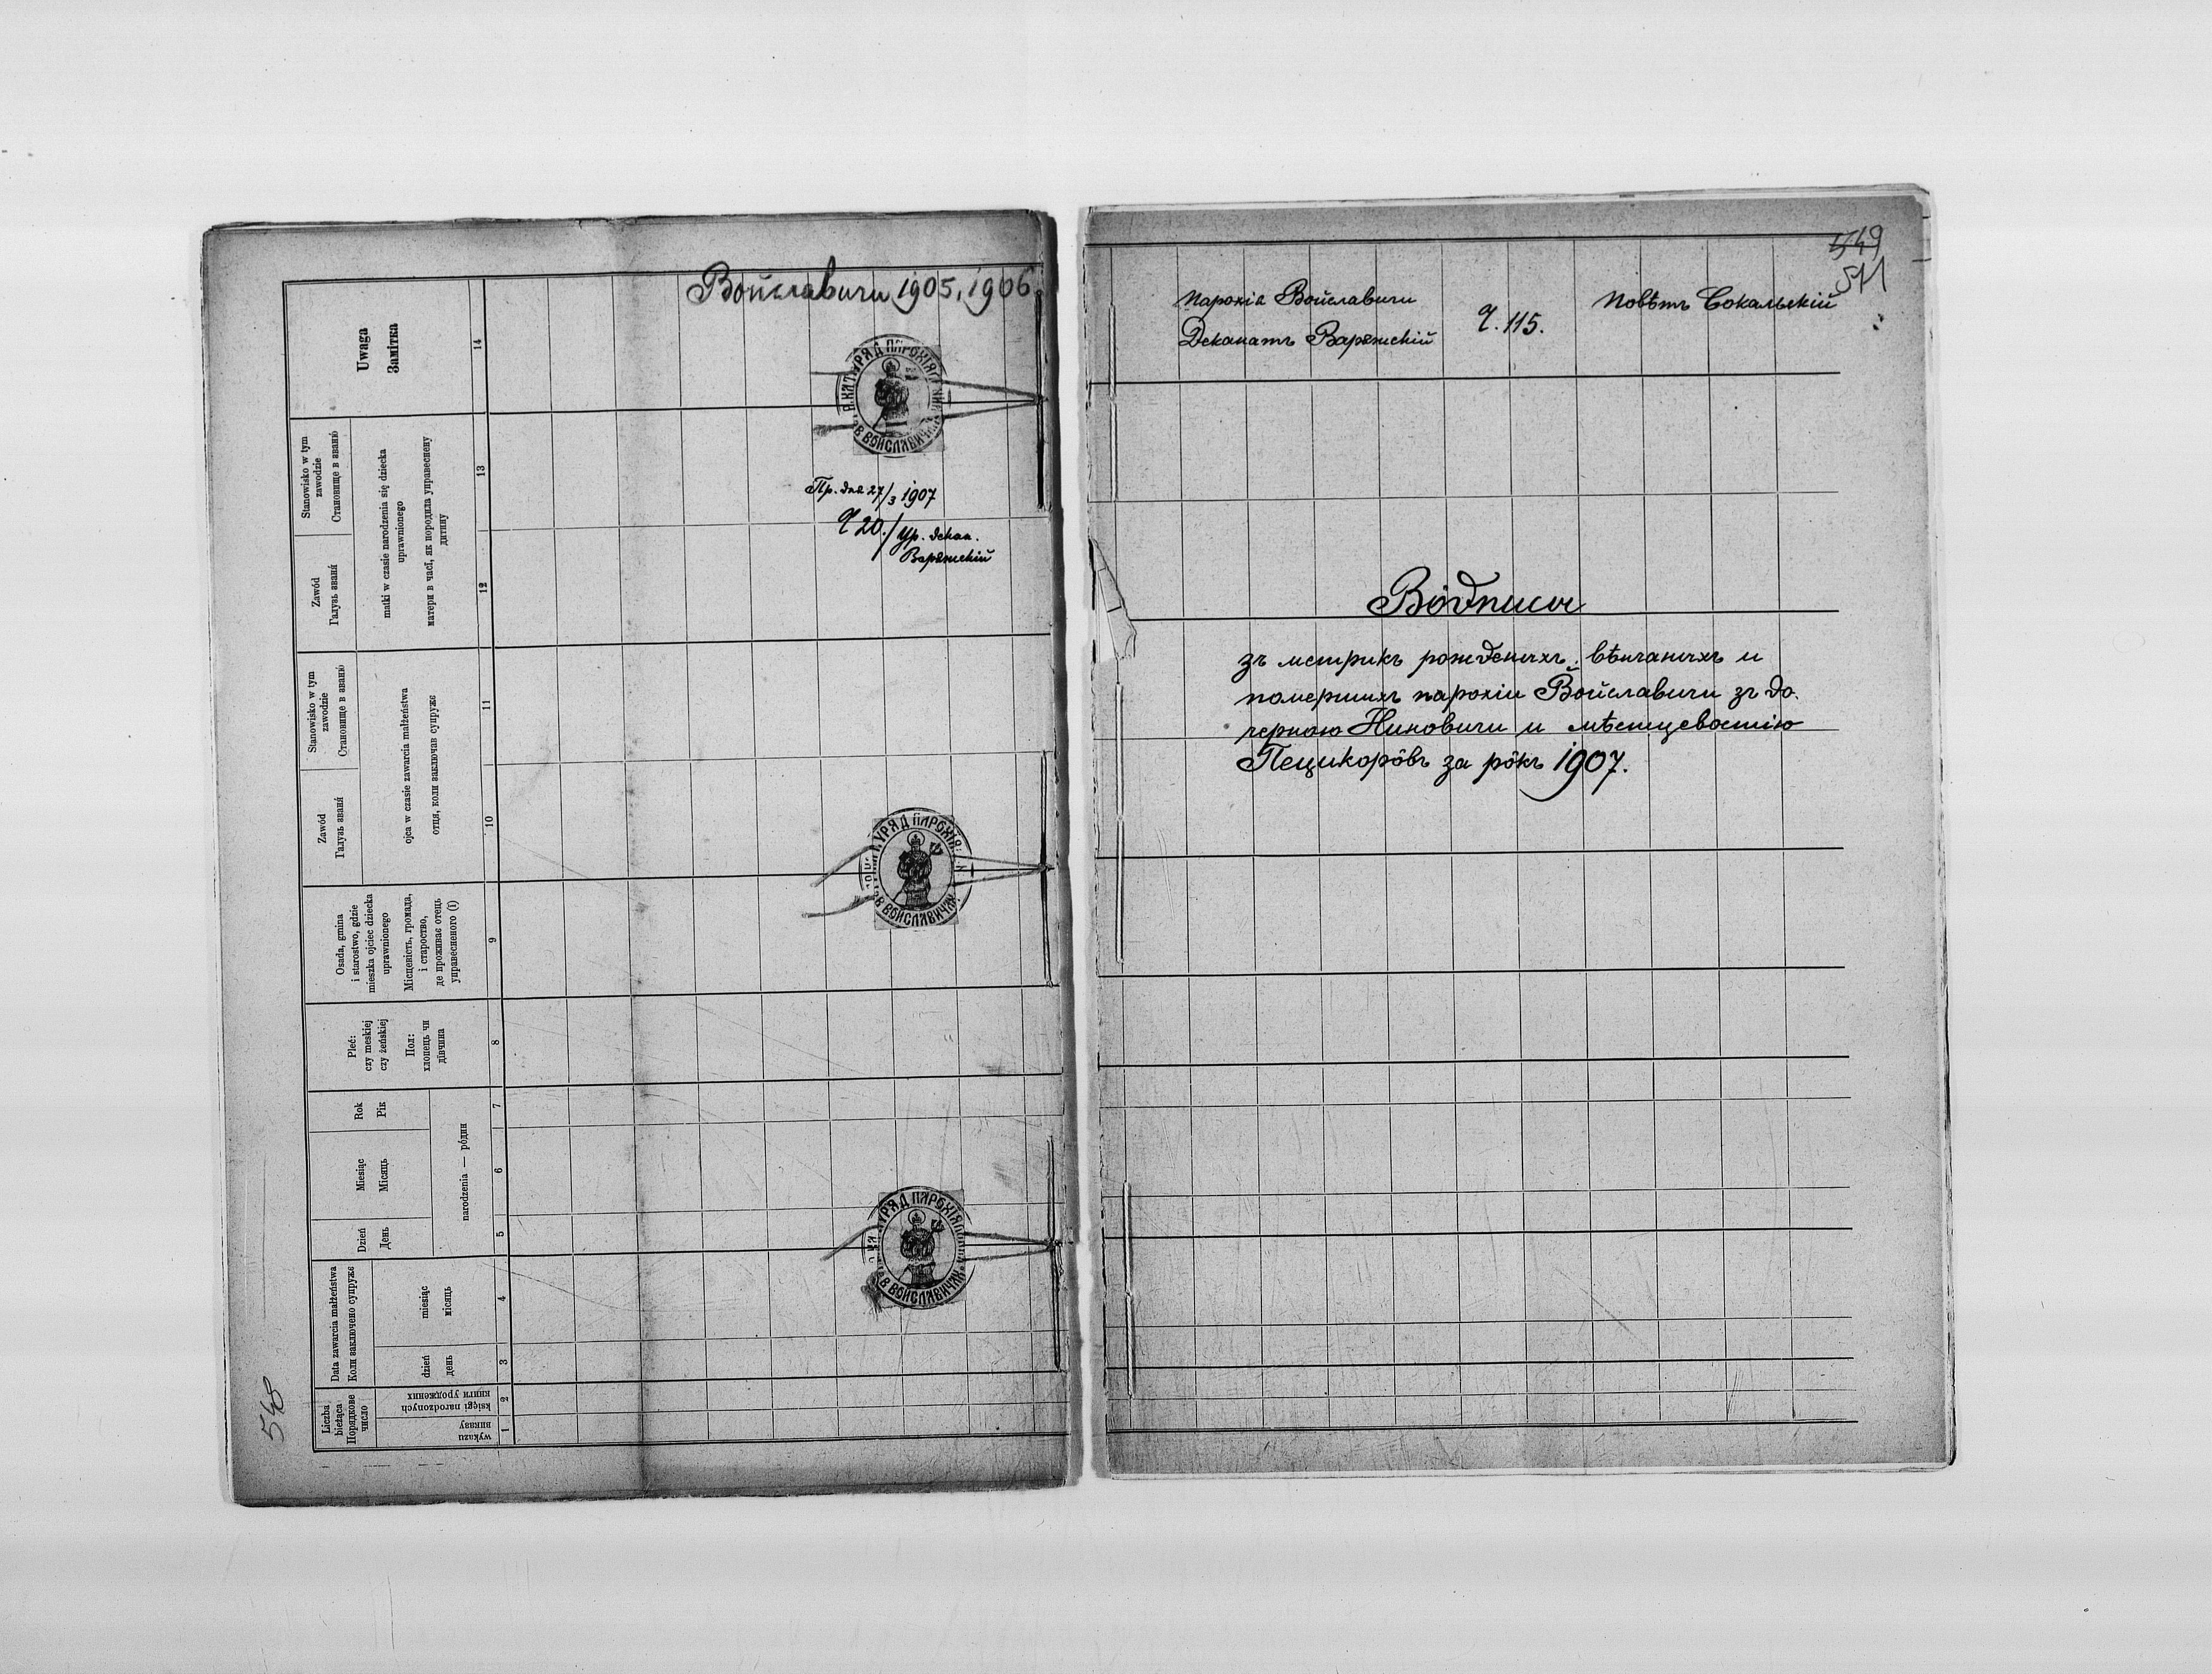 Войславичи 1905, 1906
Uwaga
Замітка
14
Stanowisko w tym
zawodzie
Становище в званю
13
Zawód
Галузь званя
12
matki w czasie narodzenia się dziecka
uprawnionego
матери в часї, як породила управеснену
дитину
Stanowisko w tym
zawodzie
Становище в званю
11
Zawód
Галузь званя
10
ojca w czasie zawarcia małżeństwa
отця, коли заключав супруже
Osada, gmina
i starostwo, gdzie
mieszka ojciec dziecka
uprawnionego
Місцевість, громада,
і староство,
де проживає отець
управесненого (ї)
9
Płeć:
czy meskiej
czy żeńskiej
Пол:
хлопець чи
дївчина
8
Rok
Рік
7
Miesiąc
Місяць
6
Dzień
День
5
narodzenia — ро́дин
Data zawarcia małżeństwa
Коли заключено супруже
miesiąc
місяць
4
dzień
день
3
Liczba
bieżąca
Порядкове
число
księgi narodzonych
книги уроджених
2
wykazu
виказу
1
УРЯД ПАРОХІЯ
В ВОИСЛАВИЧАХ
Пр. дня 27/3 1907
Ч 20./ Ур. декан.
Варяжскій
УРЯД ПАРОХІЯ
В ВОИСЛАВИЧАХ
УРЯД ПАРОХІЯ
В ВОИСЛАВИЧАХ
548
549
511
Парохія Войславичи
Деканатъ Варяжскій
Ч. 115.
Повѣтъ Сокальскій
Вôдписи
зъ метрикъ рожденыхъ, вѣнчаныхъ и
помершихъ парохіи Войславичи зъ до-
черною Ниновичи и мѣстцевостію
Пецикорôвъ за рôкъ 1907.